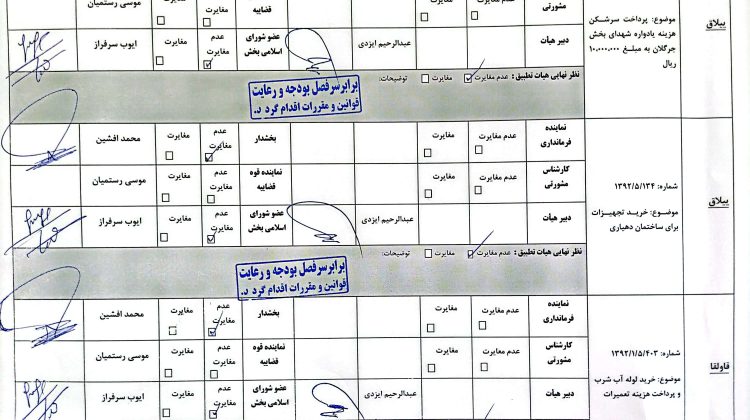 ییلاق
موضوع: پرداخت سرشکن
هزینه یادواره شهدای بخش
جرگلان به مبلغ ۱۰.۰۰۰.۰۰۰
ریال
مشورتی
عدم مغایرت
مغایرت
قضاییه
مغایرت
مغایرت
موسی رستمیان
دبیر هیات
عبدالرحیم ایزدی
عضو شورای
اسلامی بخش
عدم
مغایرت
مغایرت
ایوب سرفراز
نظر نهایی هیات تطبیق: عدم مغایرت مغایرت توضیحات:
برابرسرفصل بودجه و رعایت
قوانین و مقررات اقدام گردد.
ییلاق
شماره: ۱۳۹۲/۵/۱۳۴
موضوع: خرید تجهیزات
برای ساختمان دهیاری
نماینده
فرمانداری
عدم مغایرت
مغایرت
بخشدار
عدم
مغایرت
مغایرت
محمد افشین
کارشناس
مشورتی
عدم مغایرت
مغایرت
نماینده قوه
قضاییه
عدم
مغایرت
مغایرت
موسی رستمیان
دبیر هیات
عبدالرحیم ایزدی
عضو شورای
اسلامی بخش
عدم
مغایرت
مغایرت
ایوب سرفراز
نظر نهایی هیات تطبیق: عدم مغایرت مغایرت توضیحات:
برابرسرفصل بودجه و رعایت
قوانین و مقررات اقدام گردد.
قاولقا
شماره: ۱۳۹۲/۱/۵/۴۰۳
موضوع: خرید لوله آب شرب
و پرداخت هزینه تعمیرات
نماینده
فرمانداری
عدم مغایرت
مغایرت
بخشدار
عدم
مغایرت
مغایرت
محمد افشین
کارشناس
مشورتی
عدم مغایرت
مغایرت
نماینده قوه
قضاییه
عدم
مغایرت
مغایرت
موسی رستمیان
دبیر هیات
عبدالرحیم ایزدی
عضو شورای
اسلامی بخش
عدم
مغایرت
مغایرت
ایوب سرفراز